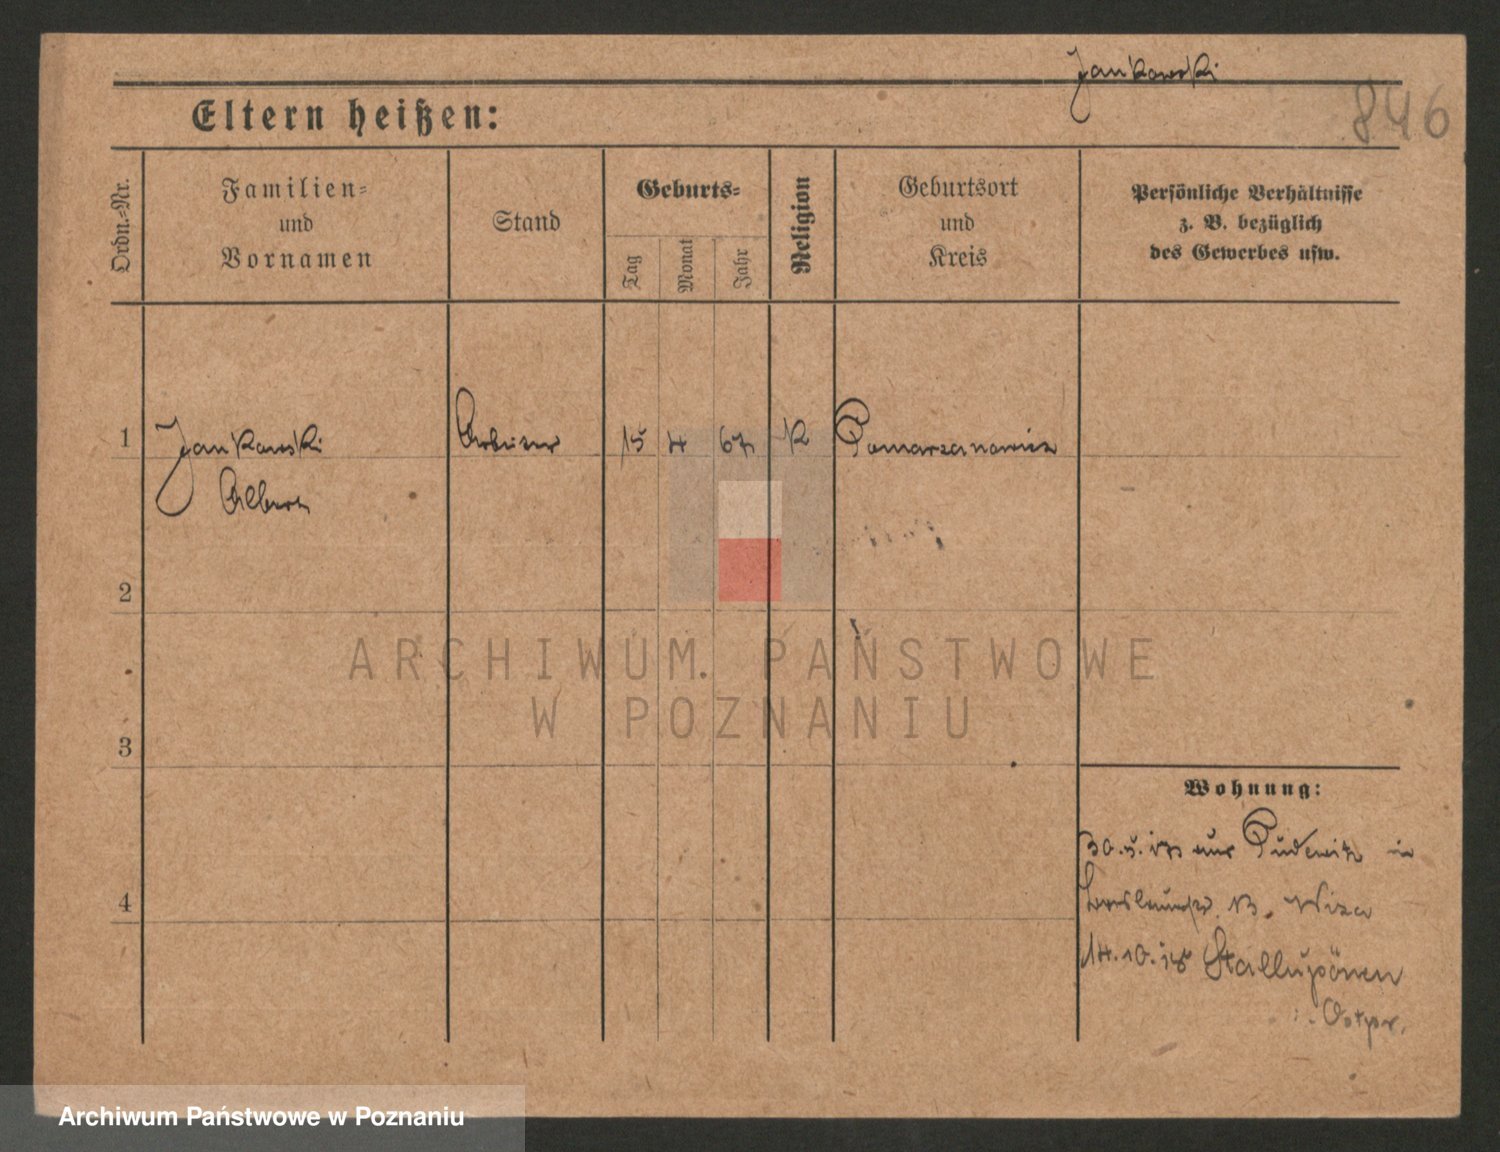 Jankowski
846
Eltern heißen:
Ordn.=Nr.
Familien=
und
Vornamen
Stand
Geburts=
Tag
Monat
Jahr
Religion
Geburtsort
und
Kreis
Persönliche Verhältnisse
z. B. bezüglich
des Gewerbes usw.
1
Jankowski
Albert
Arbeiter
15
4
67
K
Pomarzanowitz
2
ARCHIWUM PAŃSTWOWE
W POZNANIU
3
Wohnung:
30.5. aus Pudewitz in
13.
4
14.10.15 Stallupönen
Ostpr.
Archiwum Państwowe w Poznaniu